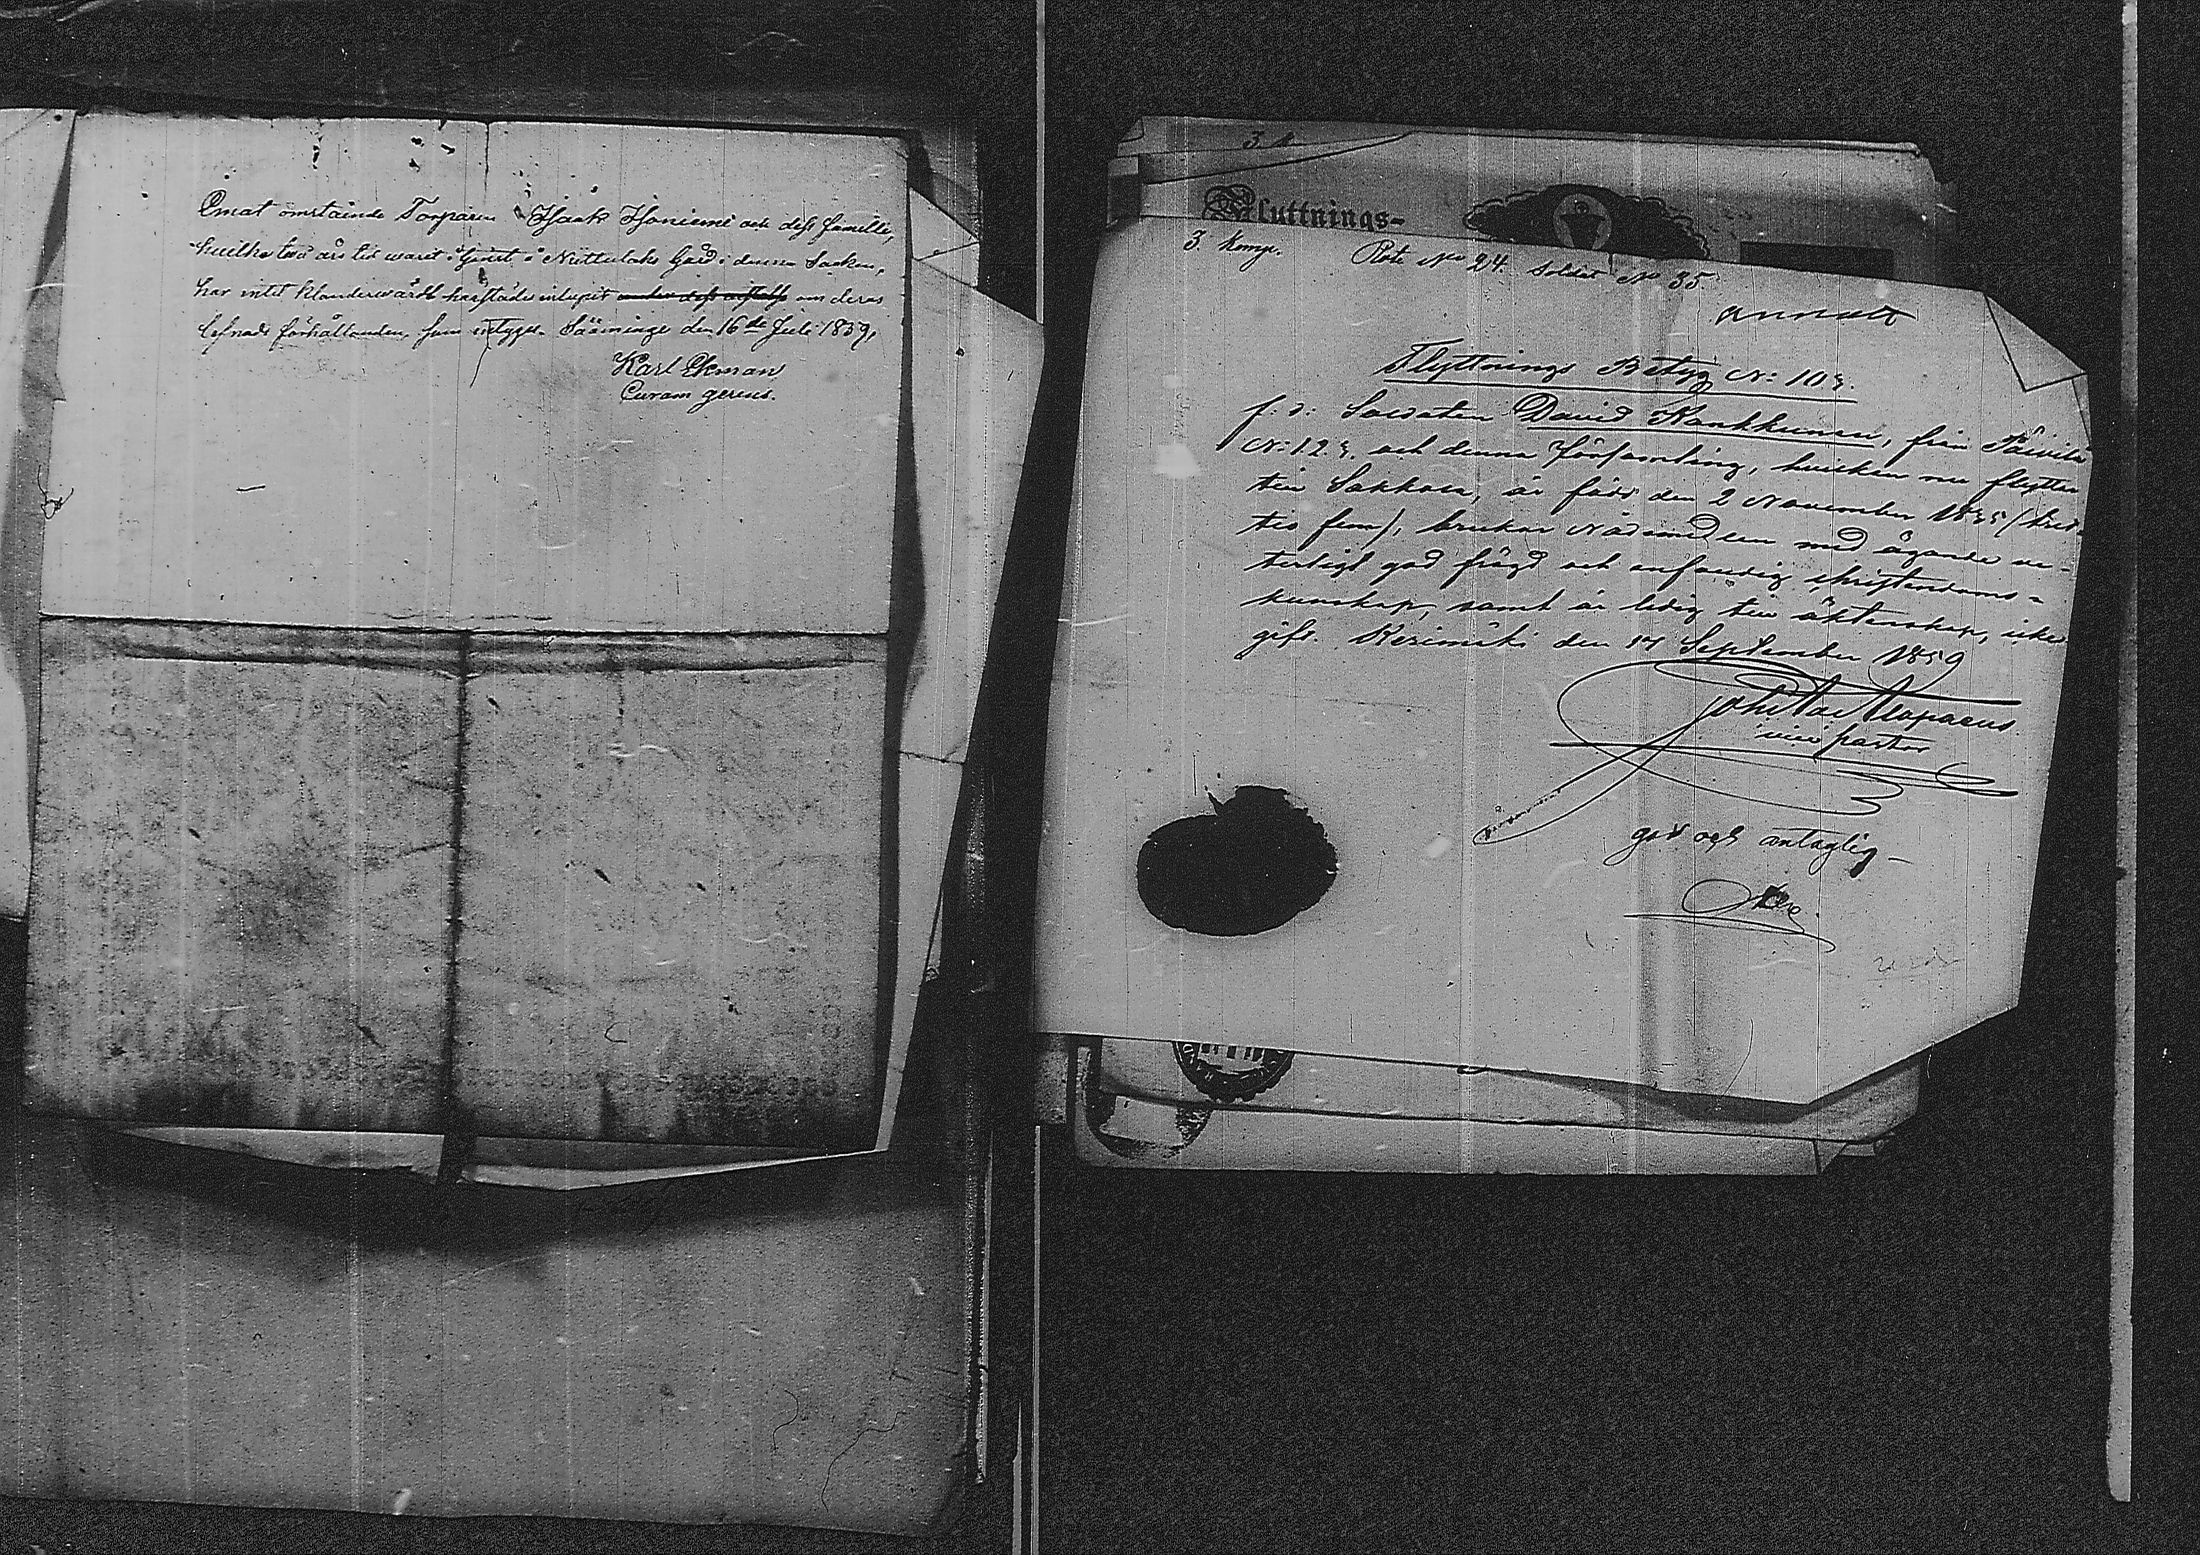 Omat omstående Torparen Isaak Ihoniemi och dess familie,
hvilka två års tid warit i tjenst å Nuttulaks Gård i denna Socken,
har intet klanderwärdt härstädes inlupit under dess wistelse om deras
lefnads förhållanden, som intygas. Sääminge den 16de Juli 1839,
Karl Ekman
Curam gerens.
3 K
Fluttnings-
3. Komp. Rote No 24. Soldat No 35
Flyttnings Betyg N: 103.
f. d. Soldaten David Kankkunen, från
N: 123. och denna Församling, hvilken nu flyttar
till Sakkola, är född den 2 November 1835 (tret-
tio fem), brukar Nådemedlen med ägande
god frägd och christendoms-
kunskap, samt är ledig till äktenskap, icke
gift. Kerimäki den 17 September 1859
Alopaeus
vice pastor
god och antaglig